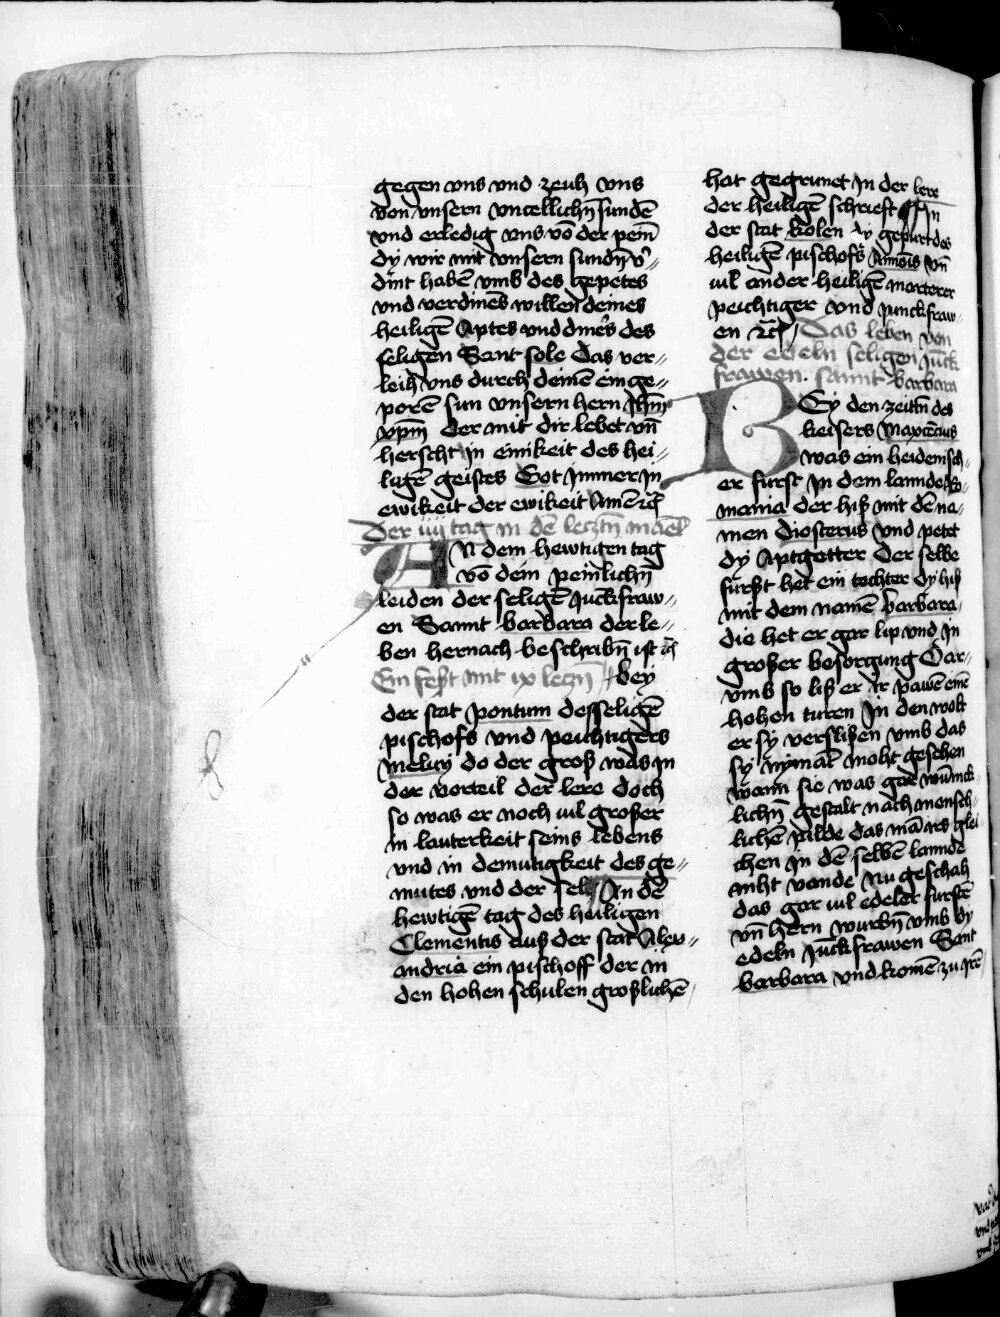 gegen vns vnd zeuh vns
von vnsern vntellichn̄ sundē
vnd erledig vns vō der pein̄
dy wir mit vnsern sundn̄ v̄
dint habē vmb des gepetes
vnd verdines willen deines
heiligē Aptes vnd diners des
seligen Sant sole das ver
leih vns durch deinē einge
porē sun vnsern hern Ihm̄
xpm̄ der mit dir lebet vn̄
herscht in einikeit des hei
ligē geistes Got jmmer in
ewikeit der ewikeit Amen
Der iiij tag in dē leczten
An dem hewtigen tag
vō dem peinlichn̄
leiden der seligē Juckfraw
en Sannt barbara der le
ben hernach beschribn̄ ist
Ein fest mit ix leczn̄ bey
der stat pontum desseligē
pischofs vnd peichtigers
melicij do der groß was in
der vorteil der lere doch
so was er noch vil großer
in lauterkeit seins lebens
vnd in demutigkeit des ge
mutes vnd der sel In dē
hewtigē tag des heiligen
Clementis auß der stat Alex
andria ein pischoff der in
den hohen schulen großlichē
hat gegrunet in der lere
der heiligē schrieft In
der stat kolen dy gepurt des
heiligē pischofs Annois vn̄
vil ander heiligē marterer
peichtiger vnd junckfraw
en Das leben von
der edeln seligen juck
frawen sannt barbara
BEy den zeittn̄ des
keisers Maxencius
was ein heidenisch
er furst in dem lannde ko
mania der hiß mit dē na
men diosterus vnd petet
dy Aptgotter Der selbe
furst het ein tochter dy hiß
mit dem namē barbara
die het er gar lip vnd in
großer besorgung Dar
vmb so liß er ir pawē eine
hohen turen in den wolt
er sy verslißen vmb das
sy nymāt moht gesehen
wann sie was gar
lichn̄ gestalt nach mensch
lichē pilde das mā irs glei
chen in dē selbē lannde
niht vande Nu geschah
das gar vil edeler furstē
vn̄ hern wurbn̄ vmb dy
edeln Juckfrawen Sant
barbara vnd komē zu irē